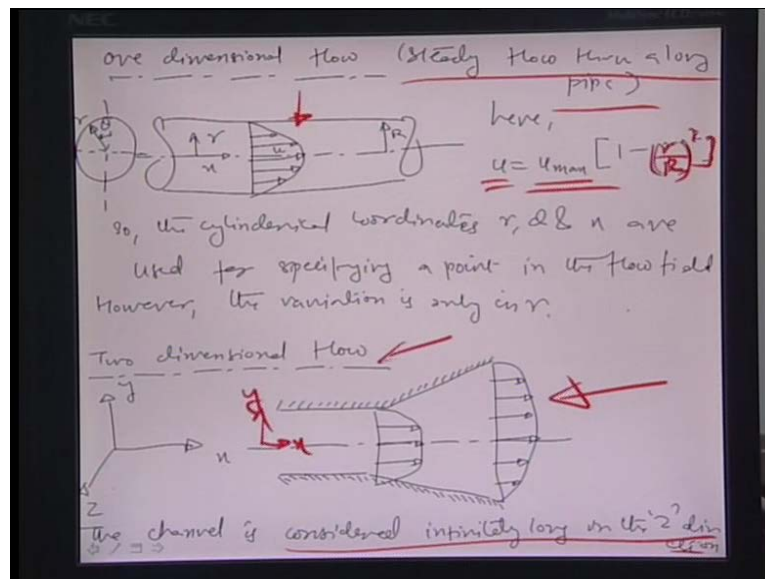 NEC
one dimensional flow (steady flow thru a long
pipe)
r
θ
r
x
u
R
here,
u = u_max [1 - (r/R)²]
so, the cylinderical coordinates r, θ & x are
used for specifying a point in the flow field
However, the variation is only in r.
Two dimensional flow
y
x
z
y
x
The channel is considered infinitely long in the 'z' dire
ction